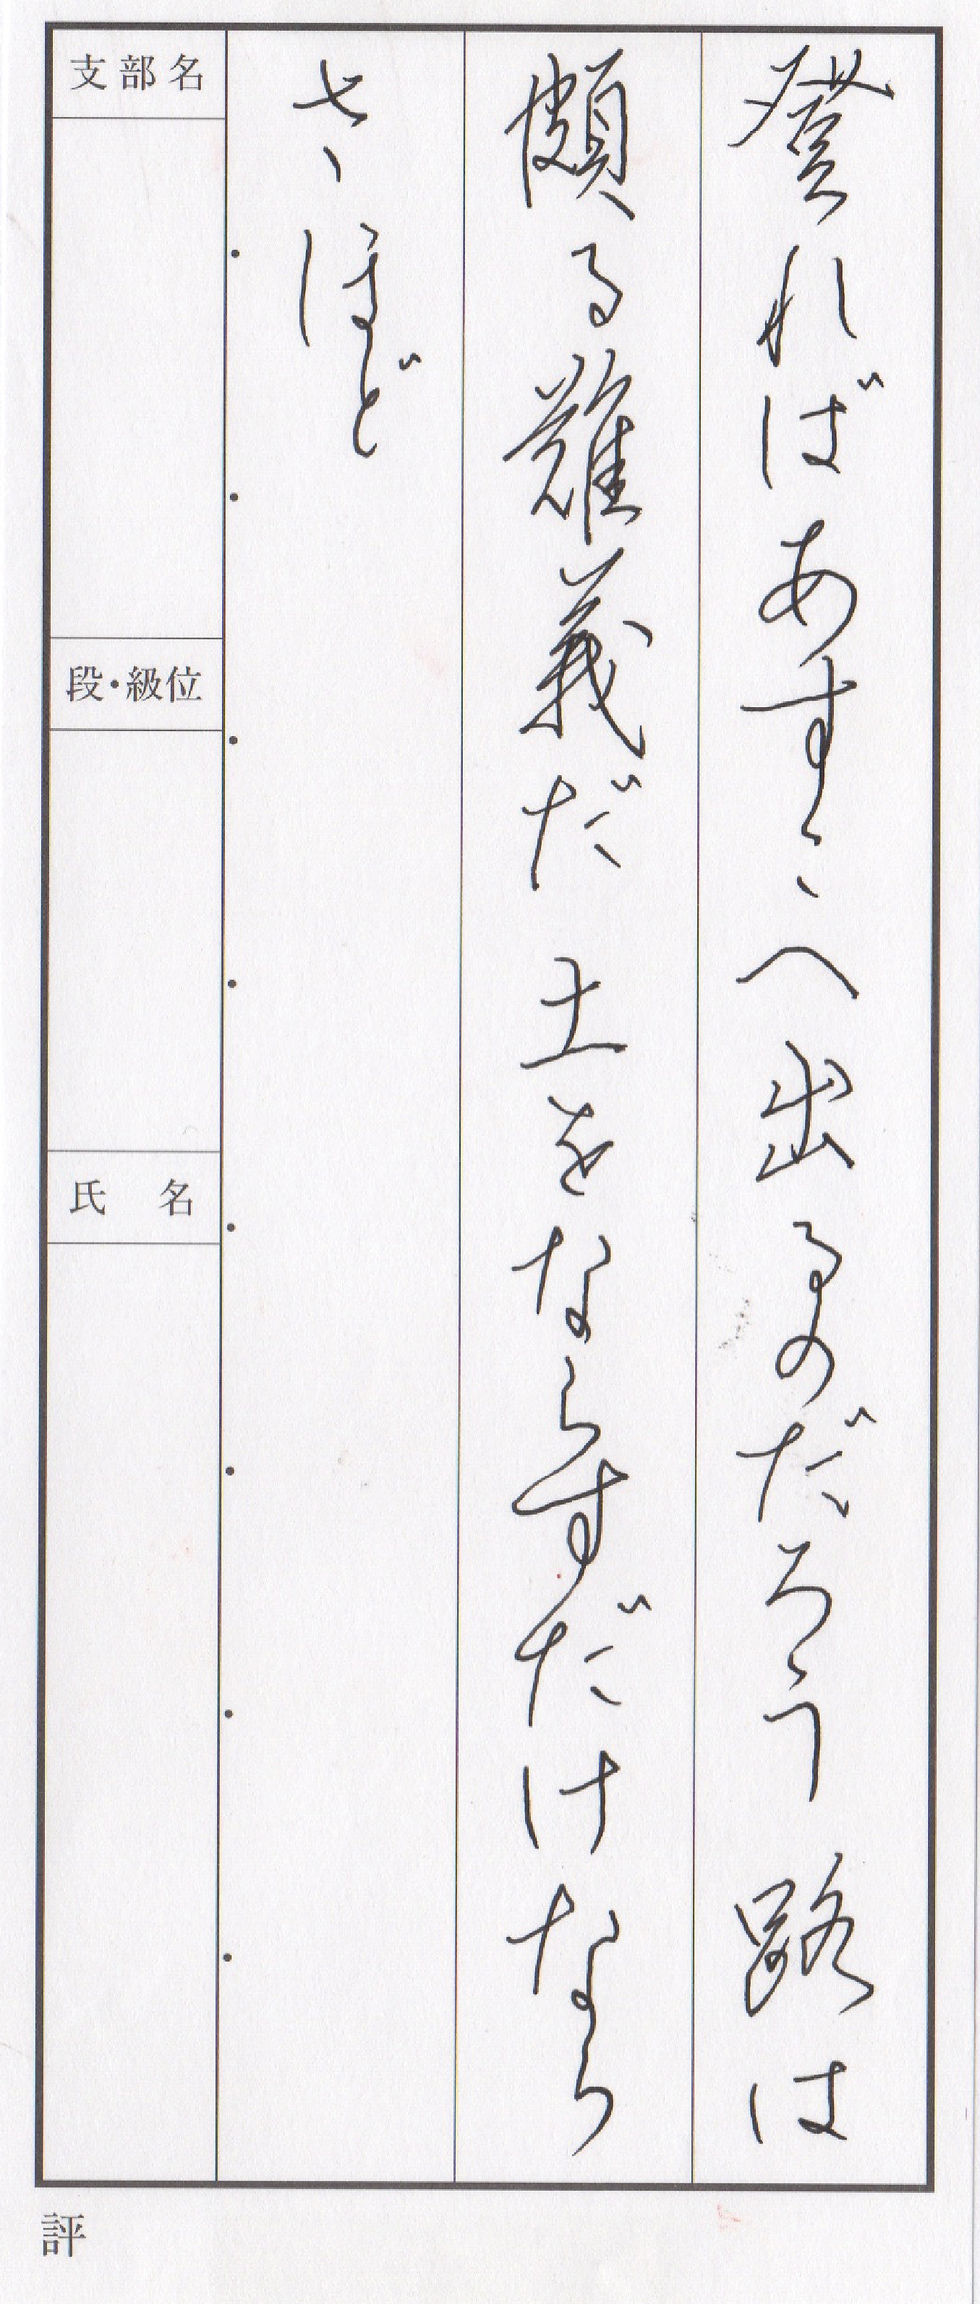 登ればあすこへ出るのだろう 路は
頗る難義だ 土をならすだけなら
さほど
支部名
段・級位
氏 名
評